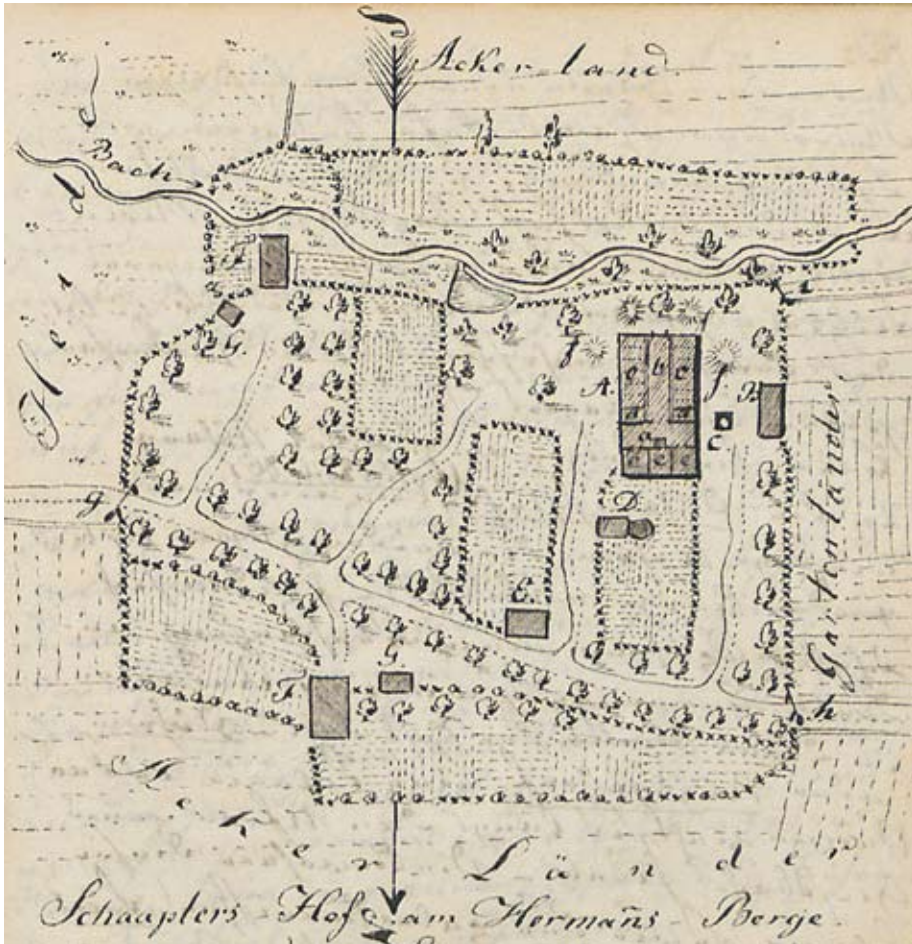 Acker land.
Bach
F
G.
f
A.
e
b
c
f
B.
d
d
a
c
e
e
e
D.
g
E.
G
F
h
Gartenländer.
Acker Länder.
Schaaplers Hof am Hermañs Berge.